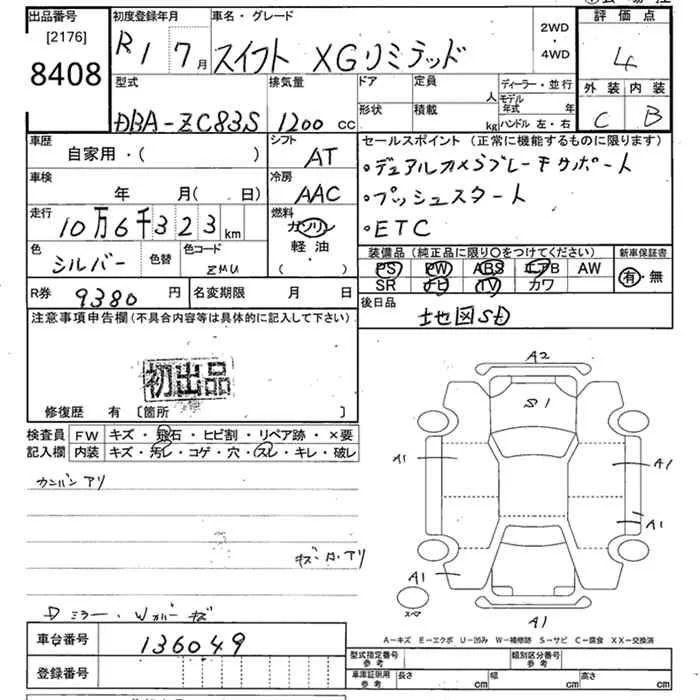 出品番号 初度登録年月 車名・グレード 評価点
[2176] R1 7月 スイフト XGリミテッド 2WD・4WD 4
8408 外装 内装
型式 排気量 ドア 定員 人 ディーラー・並行 C B
DBA-ZC83S 1200cc 形状 積載 kg モデル年式 年 ハンドル 左・右
車歴 自家用・( ) シフト AT セールスポイント (正常に機能するものに限ります)
・デュアルカメラブレーキサポート
車検 年 月( 日) 冷房 AAC ・プッシュスタート
走行 10万6千323km 燃料 ガソリン 軽油・( ) ・ETC
色 シルバー 色替 色コード ZMU 装備品 (純正品に限り○をつけてください) 新車保証書
PS PW ABS エアB AW 有・無
SR ナビ TV カワ
R券 9380円 名変期限 月 日 後日品
地図SD
注意事項申告欄(不具合内容等は具体的に記入して下さい)
初出品
修復歴 有 〔箇所 〕
検査員 FW キズ・飛石・ヒビ割・リペア跡・×要
記入欄 内装 キズ・汚レ・コゲ・穴・スレ・キレ・破レ
カンバン アリ
Dミラー・Wカバー キズ
A2
S1
A1 A1
A1
A1
スペア
A1
A－キズ E－エクボ U－凹み W－補修跡 S－サビ C－腐食 XX－交換済
車台番号 136049 型式指定番号 参考 類別区分番号 参考
登録番号 車庫証明用 参考 長さ cm 幅 cm 高さ cm